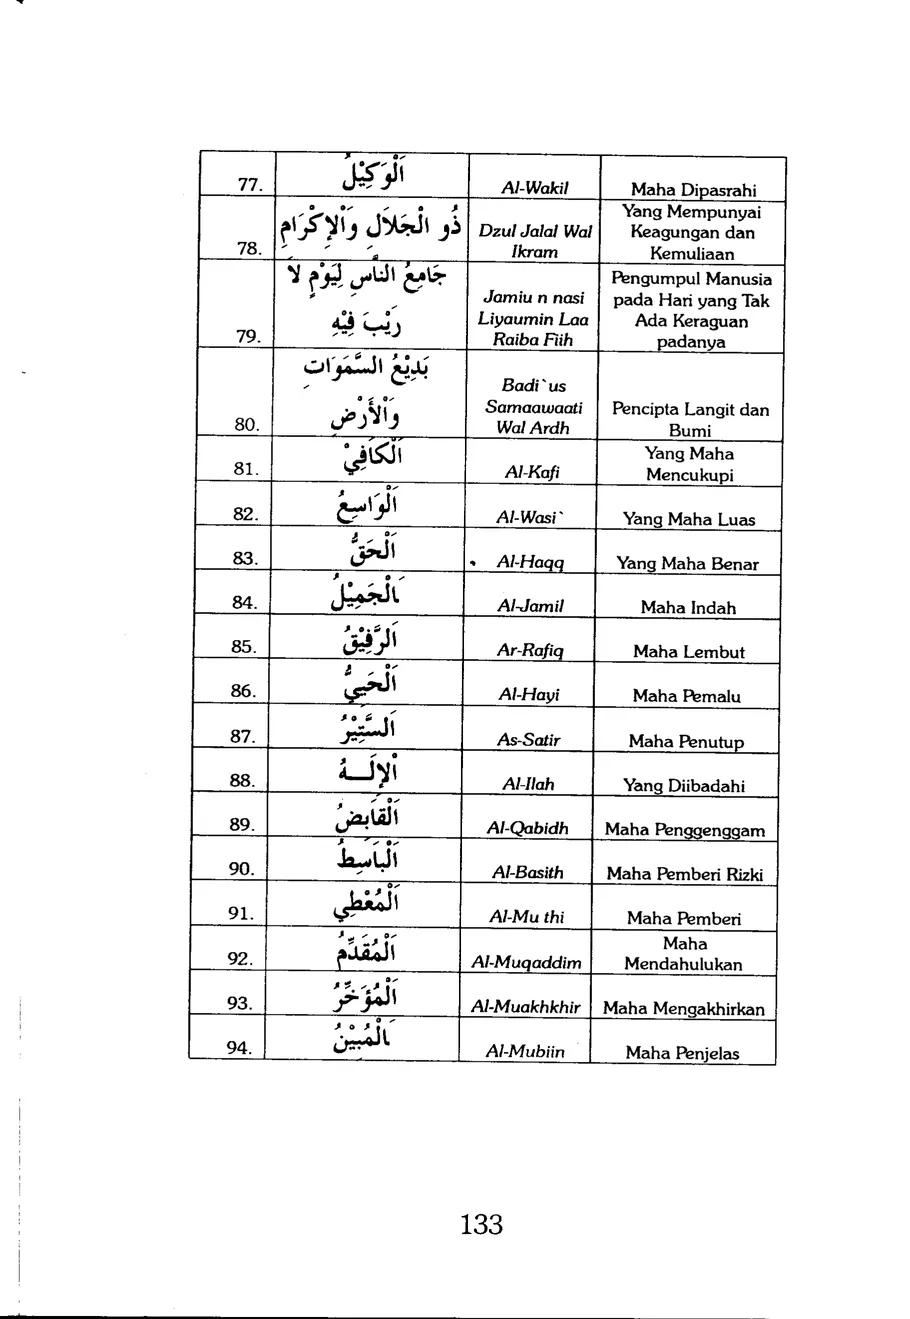 77. اَلْوَكِيْلُ Al-Wakil Maha Dipasrahi
78. ذُو الْجَلاَلِ وَاْلإِكْرَامِ Dzul Jalal Wal Yang Mempunyai
Ikram Keagungan dan
Kemuliaan
79. جَامِعُ النَّاسِ لِيَوْمٍ لاَ Jamiu n nasi Pengumpul Manusia
رَيْبَ فِيْهِ Liyaumin Laa pada Hari yang Tak
Raiba Fiih Ada Keraguan
padanya
80. بَدِيْعُ السَّمَوَاتِ Badi`us Pencipta Langit dan
وَاْلأَرْضِ Samaawaati Bumi
Wal Ardh
81. اَلْكَافِيْ Al-Kafi Yang Maha
Mencukupi
82. اَلْوَاسِعُ Al-Wasi` Yang Maha Luas
83. اَلْحَقُّ Al-Haqq Yang Maha Benar
84. اَلْجَمِيْلُ Al-Jamil Maha Indah
85. اَلرَّفِيْقُ Ar-Rafiq Maha Lembut
86. اَلْحَيِيُّ Al-Hayi Maha Pemalu
87. اَلسَّتِيْرُ As-Satir Maha Penutup
88. اْلإِلَــهُ Al-Ilah Yang Diibadahi
89. اَلْقَابِضُ Al-Qabidh Maha Penggenggam
90. اَلْبَاسِطُ Al-Basith Maha Pemberi Rizki
91. اَلْمُعْطِي Al-Mu thi Maha Pemberi
92. اَلْمُقَدِّمُ Al-Muqaddim Maha
Mendahulukan
93. اَلْمُؤَخِّرُ Al-Muakhkhir Maha Mengakhirkan
94. اَلْمُبِيْنُ Al-Mubiin Maha Penjelas
133